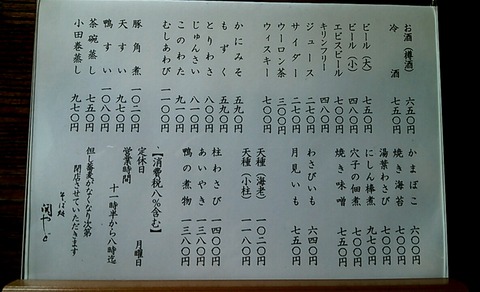 お酒（樽酒） 六五〇円
冷酒 七五〇円
ビール（大） 七五〇円
ビール（小） 四八〇円
エビスビール 七〇〇円
キリンフリー 四八〇円
ジュース 二七〇円
サイダー 二七〇円
ウーロン茶 三〇〇円
ウィスキー 七〇〇円
かにみそ 五九〇円
もずく 五九〇円
とりわさ 八〇〇円
じゅんさい 八一〇円
このわた 九一〇円
むしあわび 一一〇〇円
豚角煮
天すい 九七〇円
鴨すい 一〇八〇円
茶碗蒸し 七五〇円
小田巻蒸し 九七〇円
かまぼこ 六〇〇円
焼き海苔 七五〇円
湯葉わさび 七〇〇円
にしん棒煮 九七〇円
穴子の佃煮 七五〇円
焼き味噌 五〇〇円
わさびいも 六四〇円
月見いも 七五〇円
天種（海老） 一〇二〇円
天種（小柱） 一一八〇円
柱わさび 一四〇〇円
あいやき 一三八〇円
鴨の煮物 一三八〇円
【消費税八％含む】
定休日 月曜日
営業時間
十一時半から八時迄
但し蕎麦がなくなり次第
閉店させていただきます